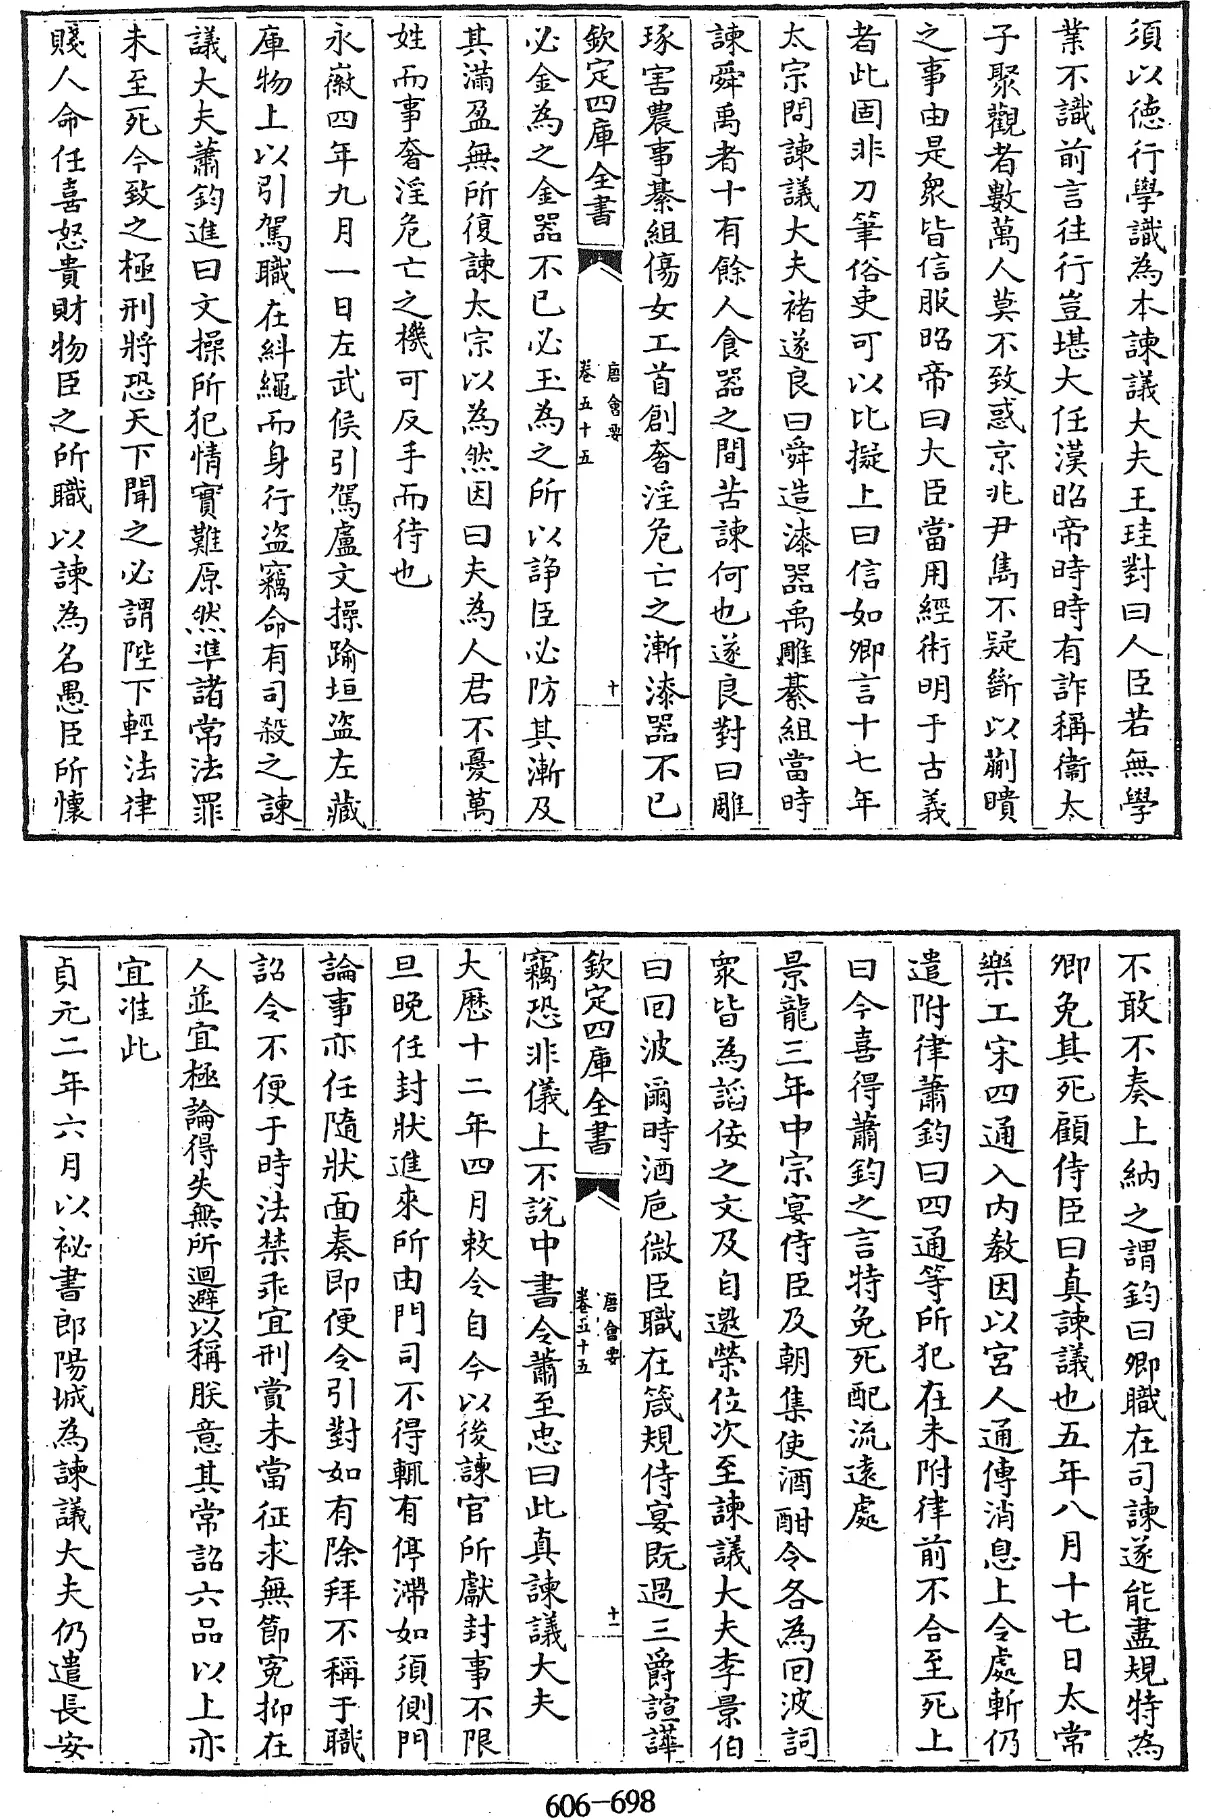 須以德行學識為本諫議大夫王珪對曰人臣若無學
業不識前言往行豈堪大任漢昭帝時時有詐稱衞太
子聚觀者數萬人莫不致惑京兆尹雋不疑斷以蒯聵
之事由是衆皆信服昭帝曰大臣當用經術明于古義
者此固非刀筆俗吏可以比擬上曰信如卿言十七年
太宗問諫議大夫褚遂良曰舜造漆器禹雕纂組當時
諫舜禹者十有餘人食器之間苦諫何也遂良對曰雕
琢害農事纂組傷女工首創奢淫危亡之漸漆器不已
欽定四庫全書
唐會要
卷五十五
十
必金為之金器不已必玉為之所以諍臣必防其漸及
其滿盈無所復諫太宗以為然因曰夫為人君不憂萬
姓而事奢淫危亡之機可反手而待也
永徽四年九月一日左武侯引駕盧文操踰垣盜左藏
庫物上以引駕職在糾繩而身行盜竊命有司殺之諫
議大夫蕭鈞進曰文操所犯情實難原然準諸常法罪
未至死今致之極刑將恐天下聞之必謂陛下輕法律
賤人命任喜怒貴財物臣之所職以諫為名愚臣所懷
不敢不奏上納之謂鈞曰卿職在司諫遂能盡規特為
卿免其死顧侍臣曰真諫議也五年八月十七日太常
樂工宋四通入内教因以宮人通傳消息上令處斬仍
遣附律蕭鈞曰四通等所犯在未附律前不合至死上
曰今喜得蕭鈞之言特免死配流遠處
景龍三年中宗宴侍臣及朝集使酒酣令各為回波詞
衆皆為諂佞之文及自邀榮位次至諫議大夫李景伯
曰回波爾時酒巵微臣職在箴規侍宴既過三爵諠譁
欽定四庫全書
唐會要
卷五十五
十一
竊恐非儀上不說中書令蕭至忠曰此真諫議大夫
大厯十二年四月敕令自今以後諫官所獻封事不限
旦晚任封狀進來所由門司不得輒有停滯如須側門
論事亦任隨狀面奏即便令引對如有除拜不稱于職
詔令不便于時法禁乖宜刑賞未當征求無節寃抑在
人並宜極論得失無所迴避以稱朕意其常詔六品以上亦
宜准此
貞元二年六月以祕書郎陽城為諫議大夫仍遣長安
606-698